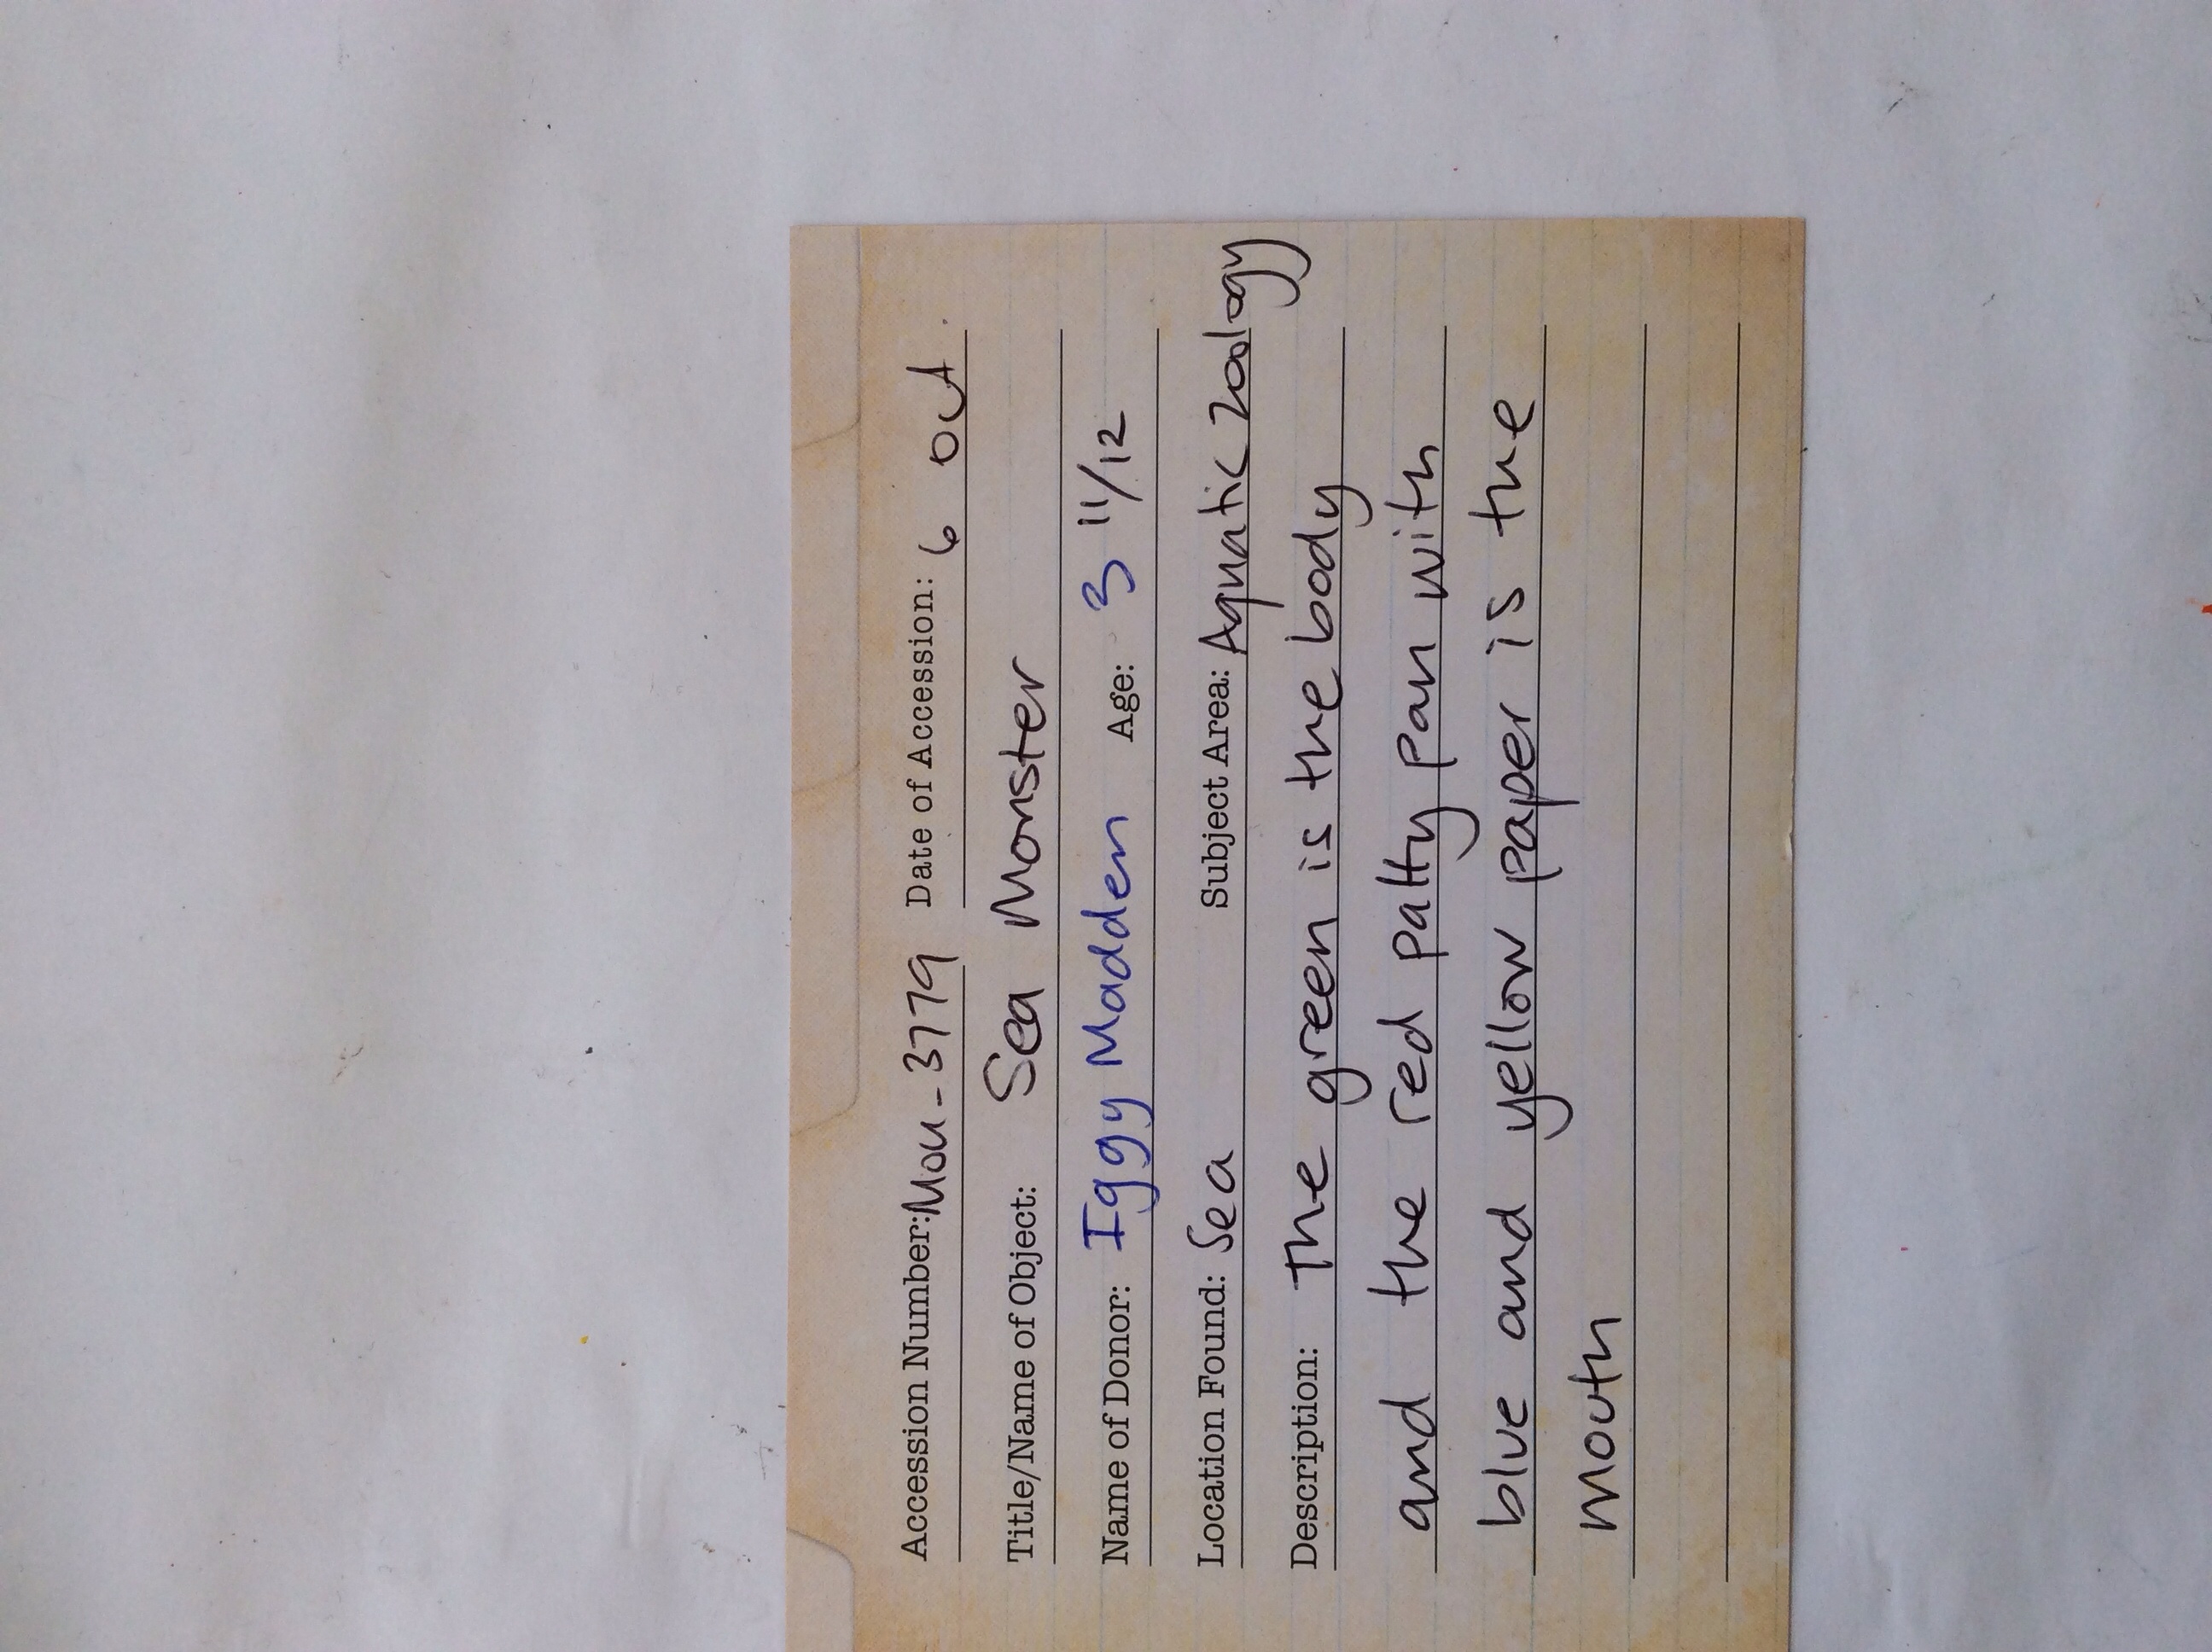 Accession Number: Mou-3779 Date of Accession: 6 Oct.
Title/Name of Object: Sea Monster
Name of Donor: Iggy Madden Age: 3 11/12
Location Found: Sea Subject Area: Aquatic Zoology
Description: The green is the body
and the red patty pan with
blue and yellow paper is the
mouth